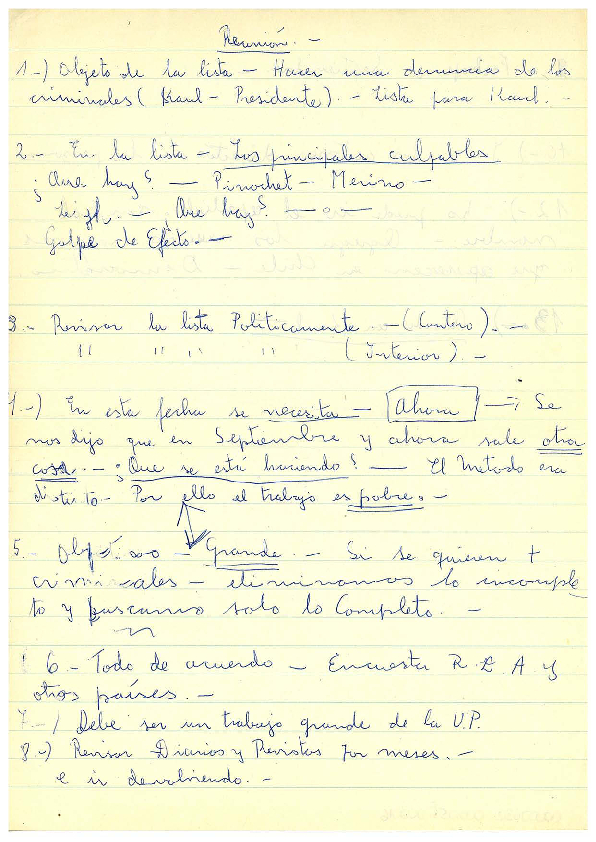 Reunión. -
1-) Objeto de la lista - Hacer una denuncia de los
criminales ( - Presidente). - Lista para . -
2.- En la lista - Los principales culpables
¿Que hay? - Pinochet - Merino -
Leigh. - Que hay? - o -
Golpe de Efecto. -
3.- Revisar la lista Politicamente. - (Cantero). -
" " " " (Interior). -
4.-) En esta fecha se necesita - Ahora - Se
nos dijo que en Septiembre y ahora sale otra
cosa. - ¿Que se está haciendo? - El Metodo era
distinto - Por ello el trabajo es pobre. -
5.- Objetivo - Grande. - Si se quieren +
criminales - eliminamos lo incomple
to y buscamos solo lo Completo. -
6 - Todo de acuerdo - Encuesta R.D.A y
otros países. -
7-) Debe ser un trabajo grande de la U.P.
8-) Revisar Diarios y Revistas por meses. -
e ir devolviendo. -